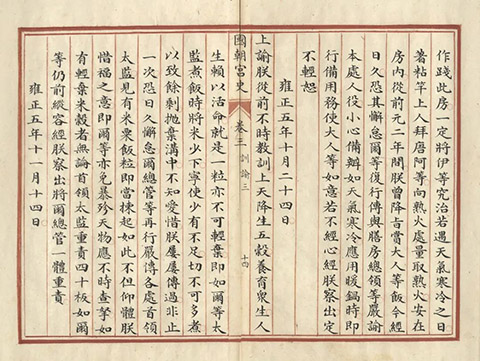 作踐此房一定將伊等究治若遇天氣寒冷之日
著粘竿上人拜唐阿等向熱火處量取熱火安在
房內從前元二年間朕曾降旨賞大人等飯今經
日久恐其懈怠爾等復行傳與膳房總領等嚴諭
本處人役小心備辦如天氣寒冷應用暖鍋時即
行備用務使大人等如意若不經心經朕察出定
不輕恕
雍正五年十月二十四日
上諭朕從前不時教訓上天降生五穀養育衆生人
國朝宮史 卷三 訓諭三 十四
生賴以活命就是一粒亦不可輕棄即如爾等太
監煮飯時將米少下寧使少有不足切不可多煮
以致餘剩拋棄溝中不知愛惜朕屢屢傳過非止
一次恐日久懈怠爾總管等再行嚴傳各處首領
太監見有米粟飯粒即當揀起如此不但仰體朕
惜福之意即爾等亦免暴殄天物應不時查拏如
有輕棄米穀者無論首領太監重責四十板如爾
等仍前縱容經朕察出將爾總管一體重責
雍正五年十一月十四日